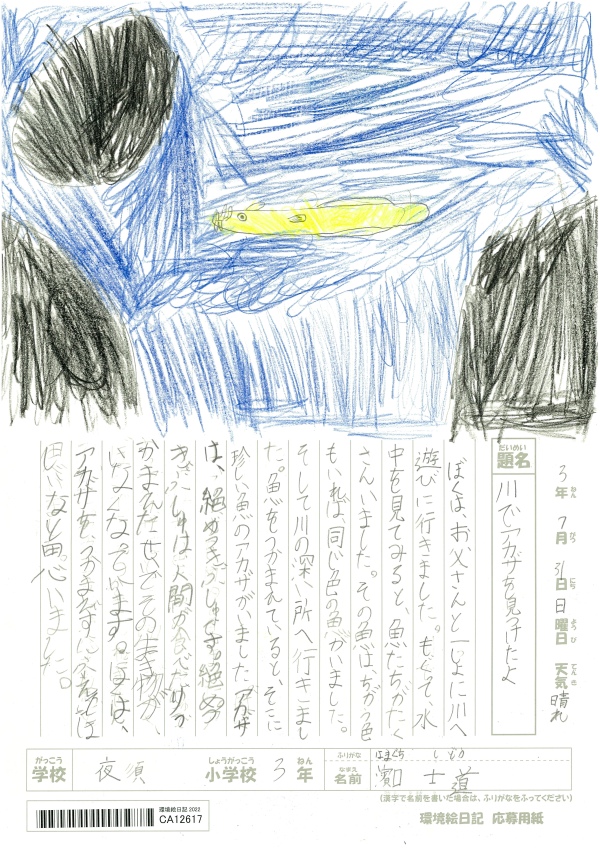 3年 7月 31日 日曜日 天気 晴れ
ねん がつ にち ようび てんき
だいめい
題名
川でアカザを見つけたよ
ぼくは、お父さんと一しょに川へ
遊びに行きました。もぐって、水
中を見てみると、魚たちがたく
さんいました。その魚は、ちがう色
もいれば、同じ色の魚がいました。
そして川の深い所へ行きまし
た。魚をつかまえていると、そこに
珍しい魚のアカザがいました アカザ
は、絶めつきぐしゅです。絶めつ
きぐしゅは人間が食べたりつ
かまえたせいでその生き物が、
いなくなっています。ぼくは、
アカザを、つかまえずに
思いました。
がっこう
学校
夜須
しょうがっこう
小学校
3年
ねん
ふりがな
はまぐち しどう
なまえ
名前
濵口 士道
(漢字で名前を書いた場合は、ふりがなをふってください)
環境絵日記 2022
CA12617
環境絵日記 応募用紙